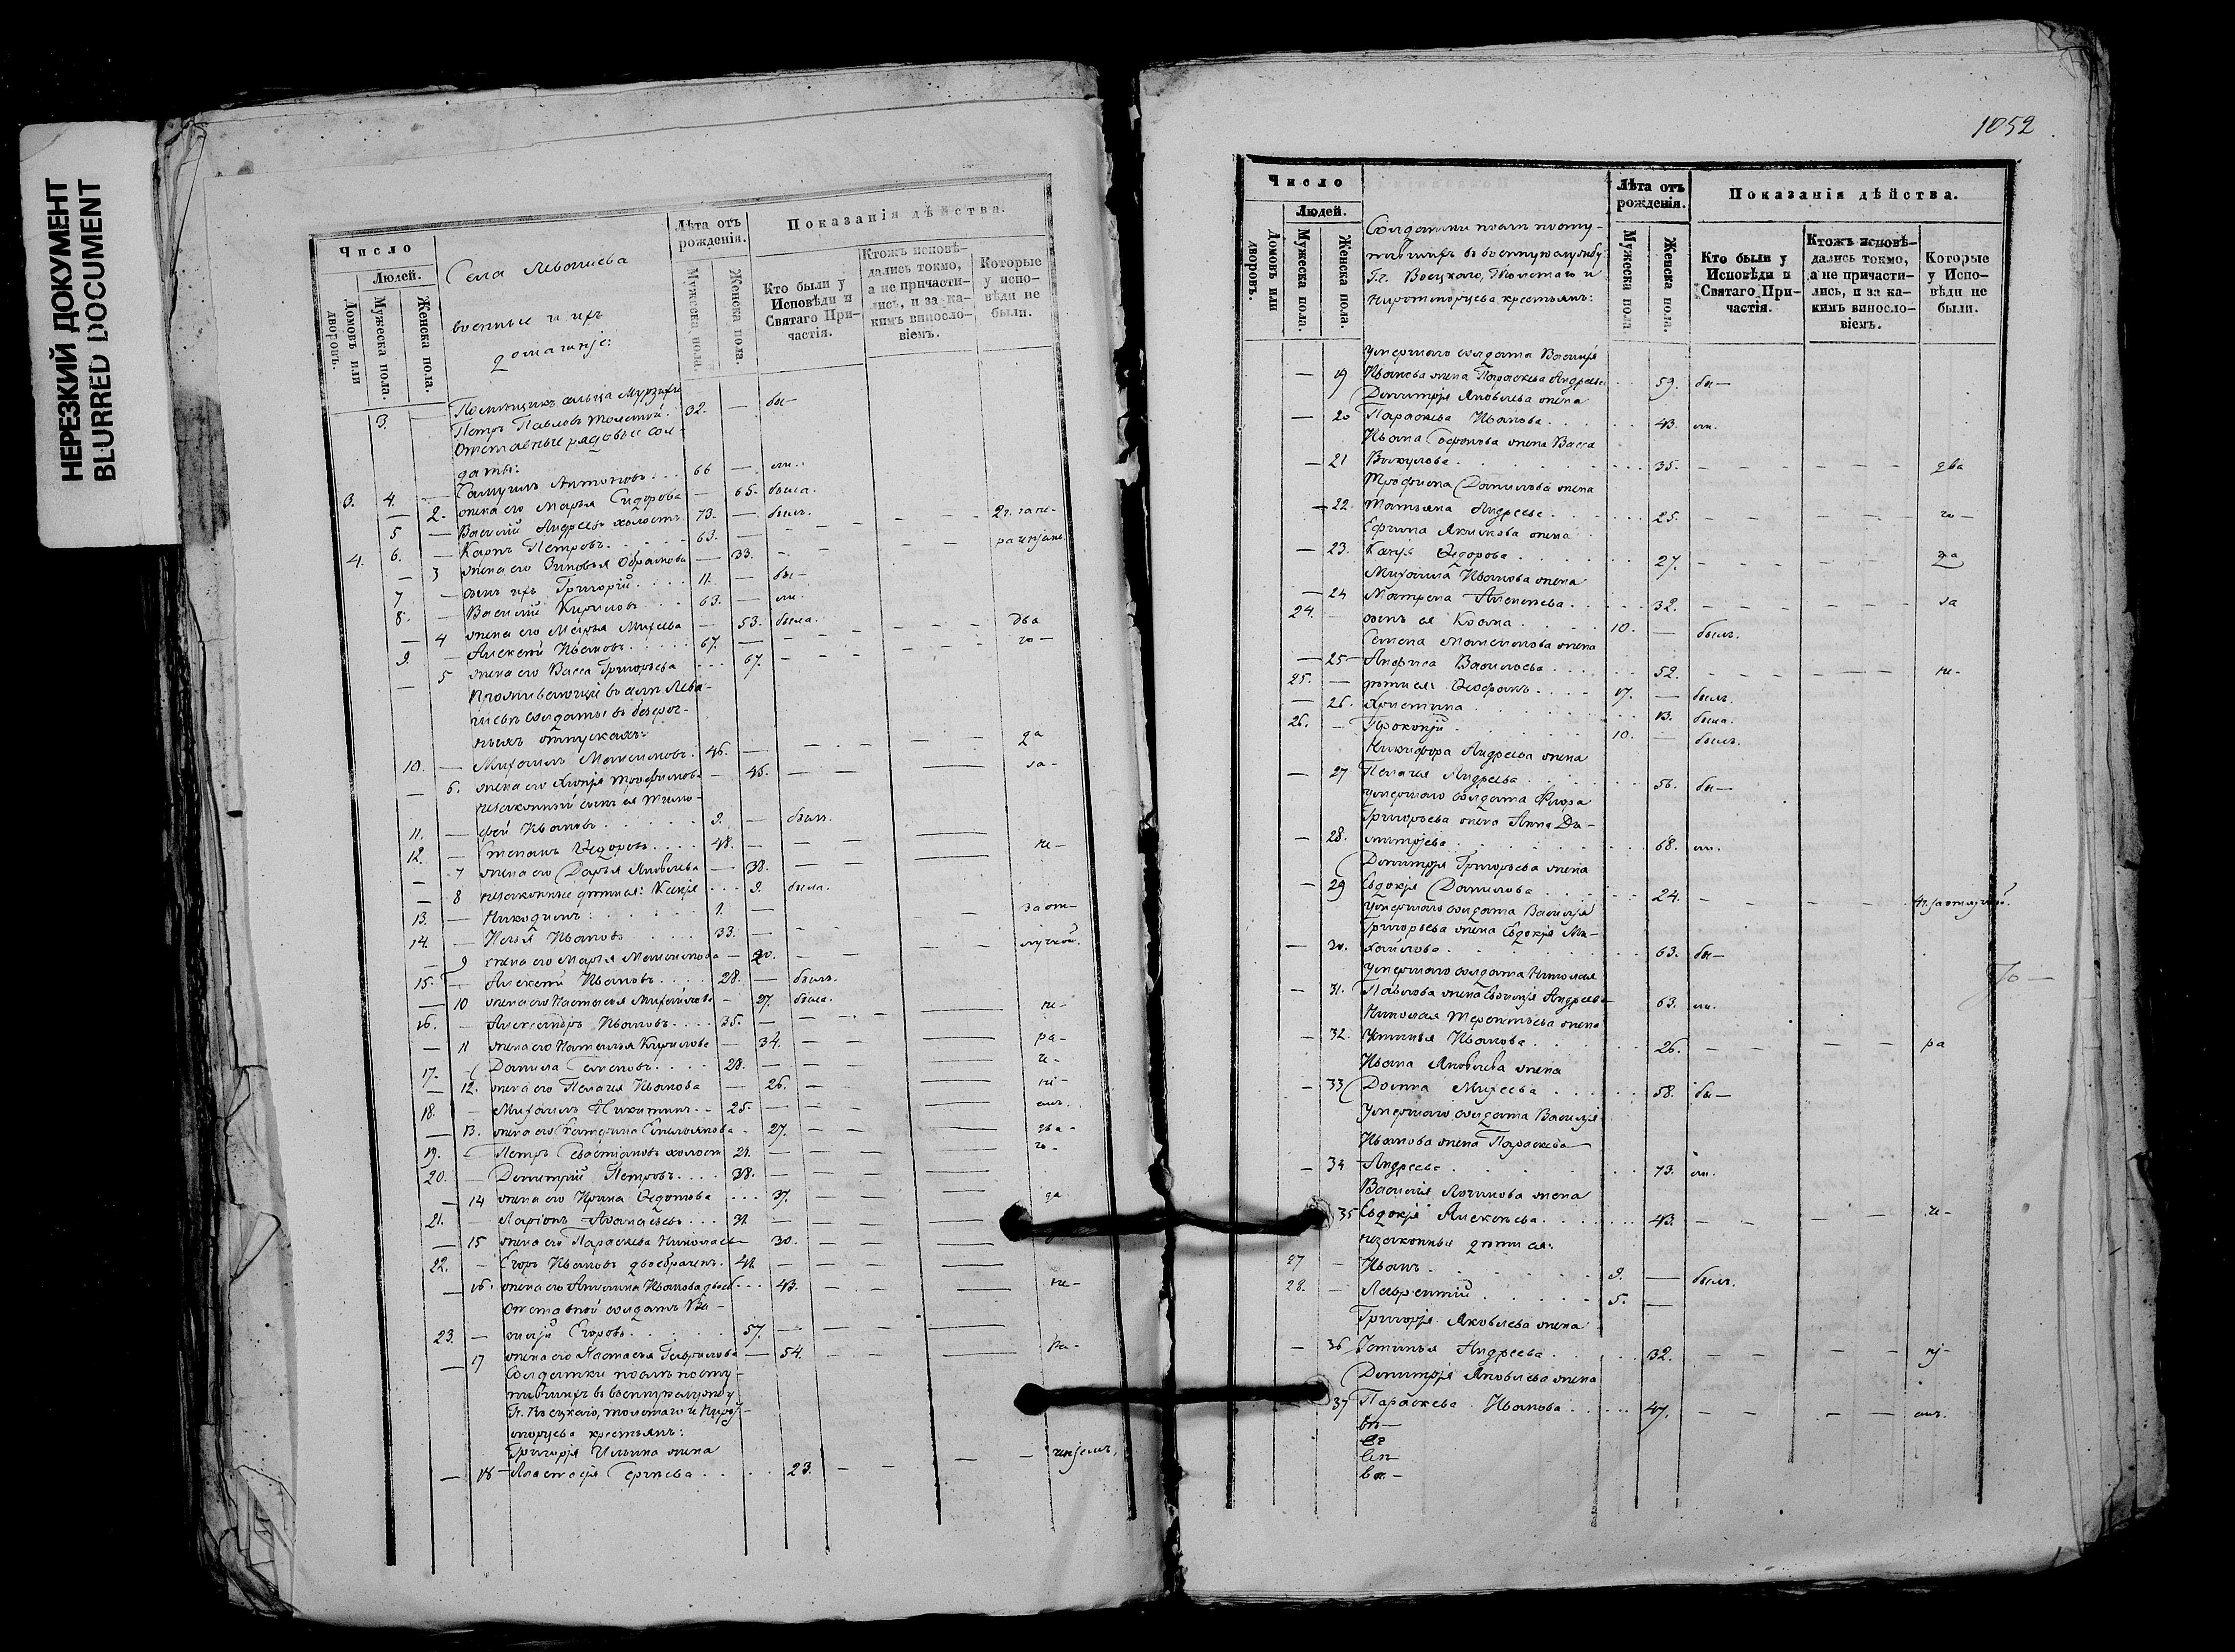 НЕРЕЗКИЙ ДОКУМЕНТ
BLURRED DOCUMENT
Число
Людей.
Домовъ или дворовъ.
Мужеска пола.
Женска пола.
Села Левашева
военные и ихъ
домашніе:
Лѣта отъ рожденія.
Мужеска пола.
Женска пола.
Показанія дѣйства.
Кто были у Исповѣди и Святаго Причастія.
Ктожъ исповѣдались токмо, а не причастились, и за какимъ винословіемъ.
Которые у исповѣди не были.
Помѣщикъ сельца
3. — Петръ Павловъ Толстой. 32. — бы-
Отставные рядовые сол-
даты:
3. 4. — Самуилъ Антоновъ . . . 66 — ли.
— 2. жена его Марья Сидорова — 65. была.
5 — Василій Андреевъ холостъ 73. — былъ.
4. 6. — Карпъ Петровъ . . . 63. —
— 3 жена его Зиновья Абрамова — 33.
7 — сынъ ихъ Григорій . . . 11. — бы-
8. — Василій Кириловъ . . . 63. — ли.
— 4 жена его Марья Михеева — 53. была.
9. — Алексѣй Ивановъ . . . . . 67. — два
— 5 жена его Васса Григорьева . . . 67. го —
Проживающіе въ селѣ Лева-
шевѣ солдаты въ безсроч-
ныхъ отпускахъ:
10. — Михаилъ Максимовъ. 46. —
— 6. жена его Хіонія Трофимова — 45. — за-
незаконный сынъ ея Тимо-
11. — фей Ивановъ . . . . . 9. — былъ.
12. — Степанъ Ѳедоровъ . . . . 48. — не-
— 7 жена его Дарья Яковлева — 38.
— 8 незаконные дѣти ея: Ксенія . . . 9. была.
13. — Никодимъ: . . . . . 1. —
14. — Илья Ивановъ . . . . 33. — за от-
— 9 жена его Марья Максимова — 30. лучкой.
15. — Алексѣй Ивановъ . . . . 28. — былъ.
— 10 жена его Настасья Михайлова — 27. была.
16. — Александръ Ивановъ . . . . 35. — не-
— 11 жена его Наталья Кирилова — 34. — ра-
17. — Данила Семеновъ . . . . 28. —
— 12. жена его Пелагея Иванова — 26. —
18. — Михаилъ Никитинъ . - 25. —
— 13. жена его Катерина Емельянова - 27. —
19. — Петръ Севастіановъ холостъ 21. — —
20. — Димитрій Петровъ . . . . 38. —
— 14 жена его Ирина Ѳедотова . . . 37. —
21. — Ларіонъ Аѳанасьевъ . . . 31. —
— 15 жена его Параскева Николаева 30. —
22. — Егоръ Ивановъ двоебраченъ. 41. —
— 16. жена его Акилина Иванова двоеб. . . 43. — не-
Отставной солдатъ Ва-
23. — силій Егоровъ . . . . . 57. —
— 17 жена его Настасья Гаврилова — 54.
Солдатки послѣ посту-
пившихъ въ военную службу
Гг. Воецкаго, Толстаго и
крестьянъ:
Григорія Ильина жена
— 18 Анастасія Сергѣева . . . . 23. — —
1052
Число
Людей.
Домовъ или дворовъ.
Мужеска пола.
Женска пола.
Солдатки послѣ посту-
пившихъ въ военную службу
Гг. Воецкаго, Толстаго и
крестьянъ:
Лѣта отъ рожденія.
Мужеска пола
Женска пола.
Показанія дѣйства.
Кто были у Исповѣди и Святаго Причастія.
Ктожъ исповѣдались токмо, а не причастились, и за какимъ винословіемъ.
Которые у Исповѣди не были.
Умершаго солдата Василія
— 19 Иванова жена Параскева Андреева . . 59. бы —
Димитрія Яковлева жена
— 20 Параскева Иванова . . . . . 43. ли.
Ивана Софонова жена Васса
— 21 Викулова . . . . . . 35. — два
Трофима Данилова жена
— 22. Татьяна Андреева . . . . . 25. — го —
Ефима Якимова жена
— 23. Ксенія Ѳедорова . . . . . 27. — за
Михаила Иванова жена
— 24 Матрена Алексѣева . . . . 32. —
24. — сынъ ея Козма . . . . 10. — былъ.
Семена Максимова жена
— 25 — Анфиса Васильева . . . . 52. — не-
25. — дѣти ея: Ѳеофанъ . . . . 17. — былъ.
— 26. Христина . . . . . 13. была.
26. — Прокопій . . . . . 10. — былъ.
Никифора Андреева жена
— 27 Пелагея Андреева . . . . 56. бы —
Умершаго солдата Флора
Григорьева жена Анна Ди-
— 28. митріева . . . . . . 68. ли.
Димитрія Григорьева жена
— 29 Евдокія Данилова . . . . 24. —
Умершаго солдата Василія
Григорьева жена Евдокія Ми-
— 30. хайлова . . . . . . 63. бы —
Умершаго солдата Николая
— 31. Павлова жена Андреева 63. ли.
Николая Терентьева жена
— 32. Устинья Иванова . . . . . 26. — ра
Ивана Яковлева жена
— 33 Домна Михеева . . . . . 58. бы —
Умершаго солдата Василія
Иванова жена Параскева
— 34 Андреева . . . . . . 73. ли.
Василія Логинова жена
35 Евдокія Алексѣева . . . . . 43. —
незаконные дѣти ея:
27 — Иванъ . . . . . 9. — былъ.
28. — Лаврентій . . . . . 5. —
Григорія Яковлева жена
— 36 Устинья Андреева . . . . 32. —
Димитрія Яковлева жена
37 Параскева Иванова . . . . 47. —